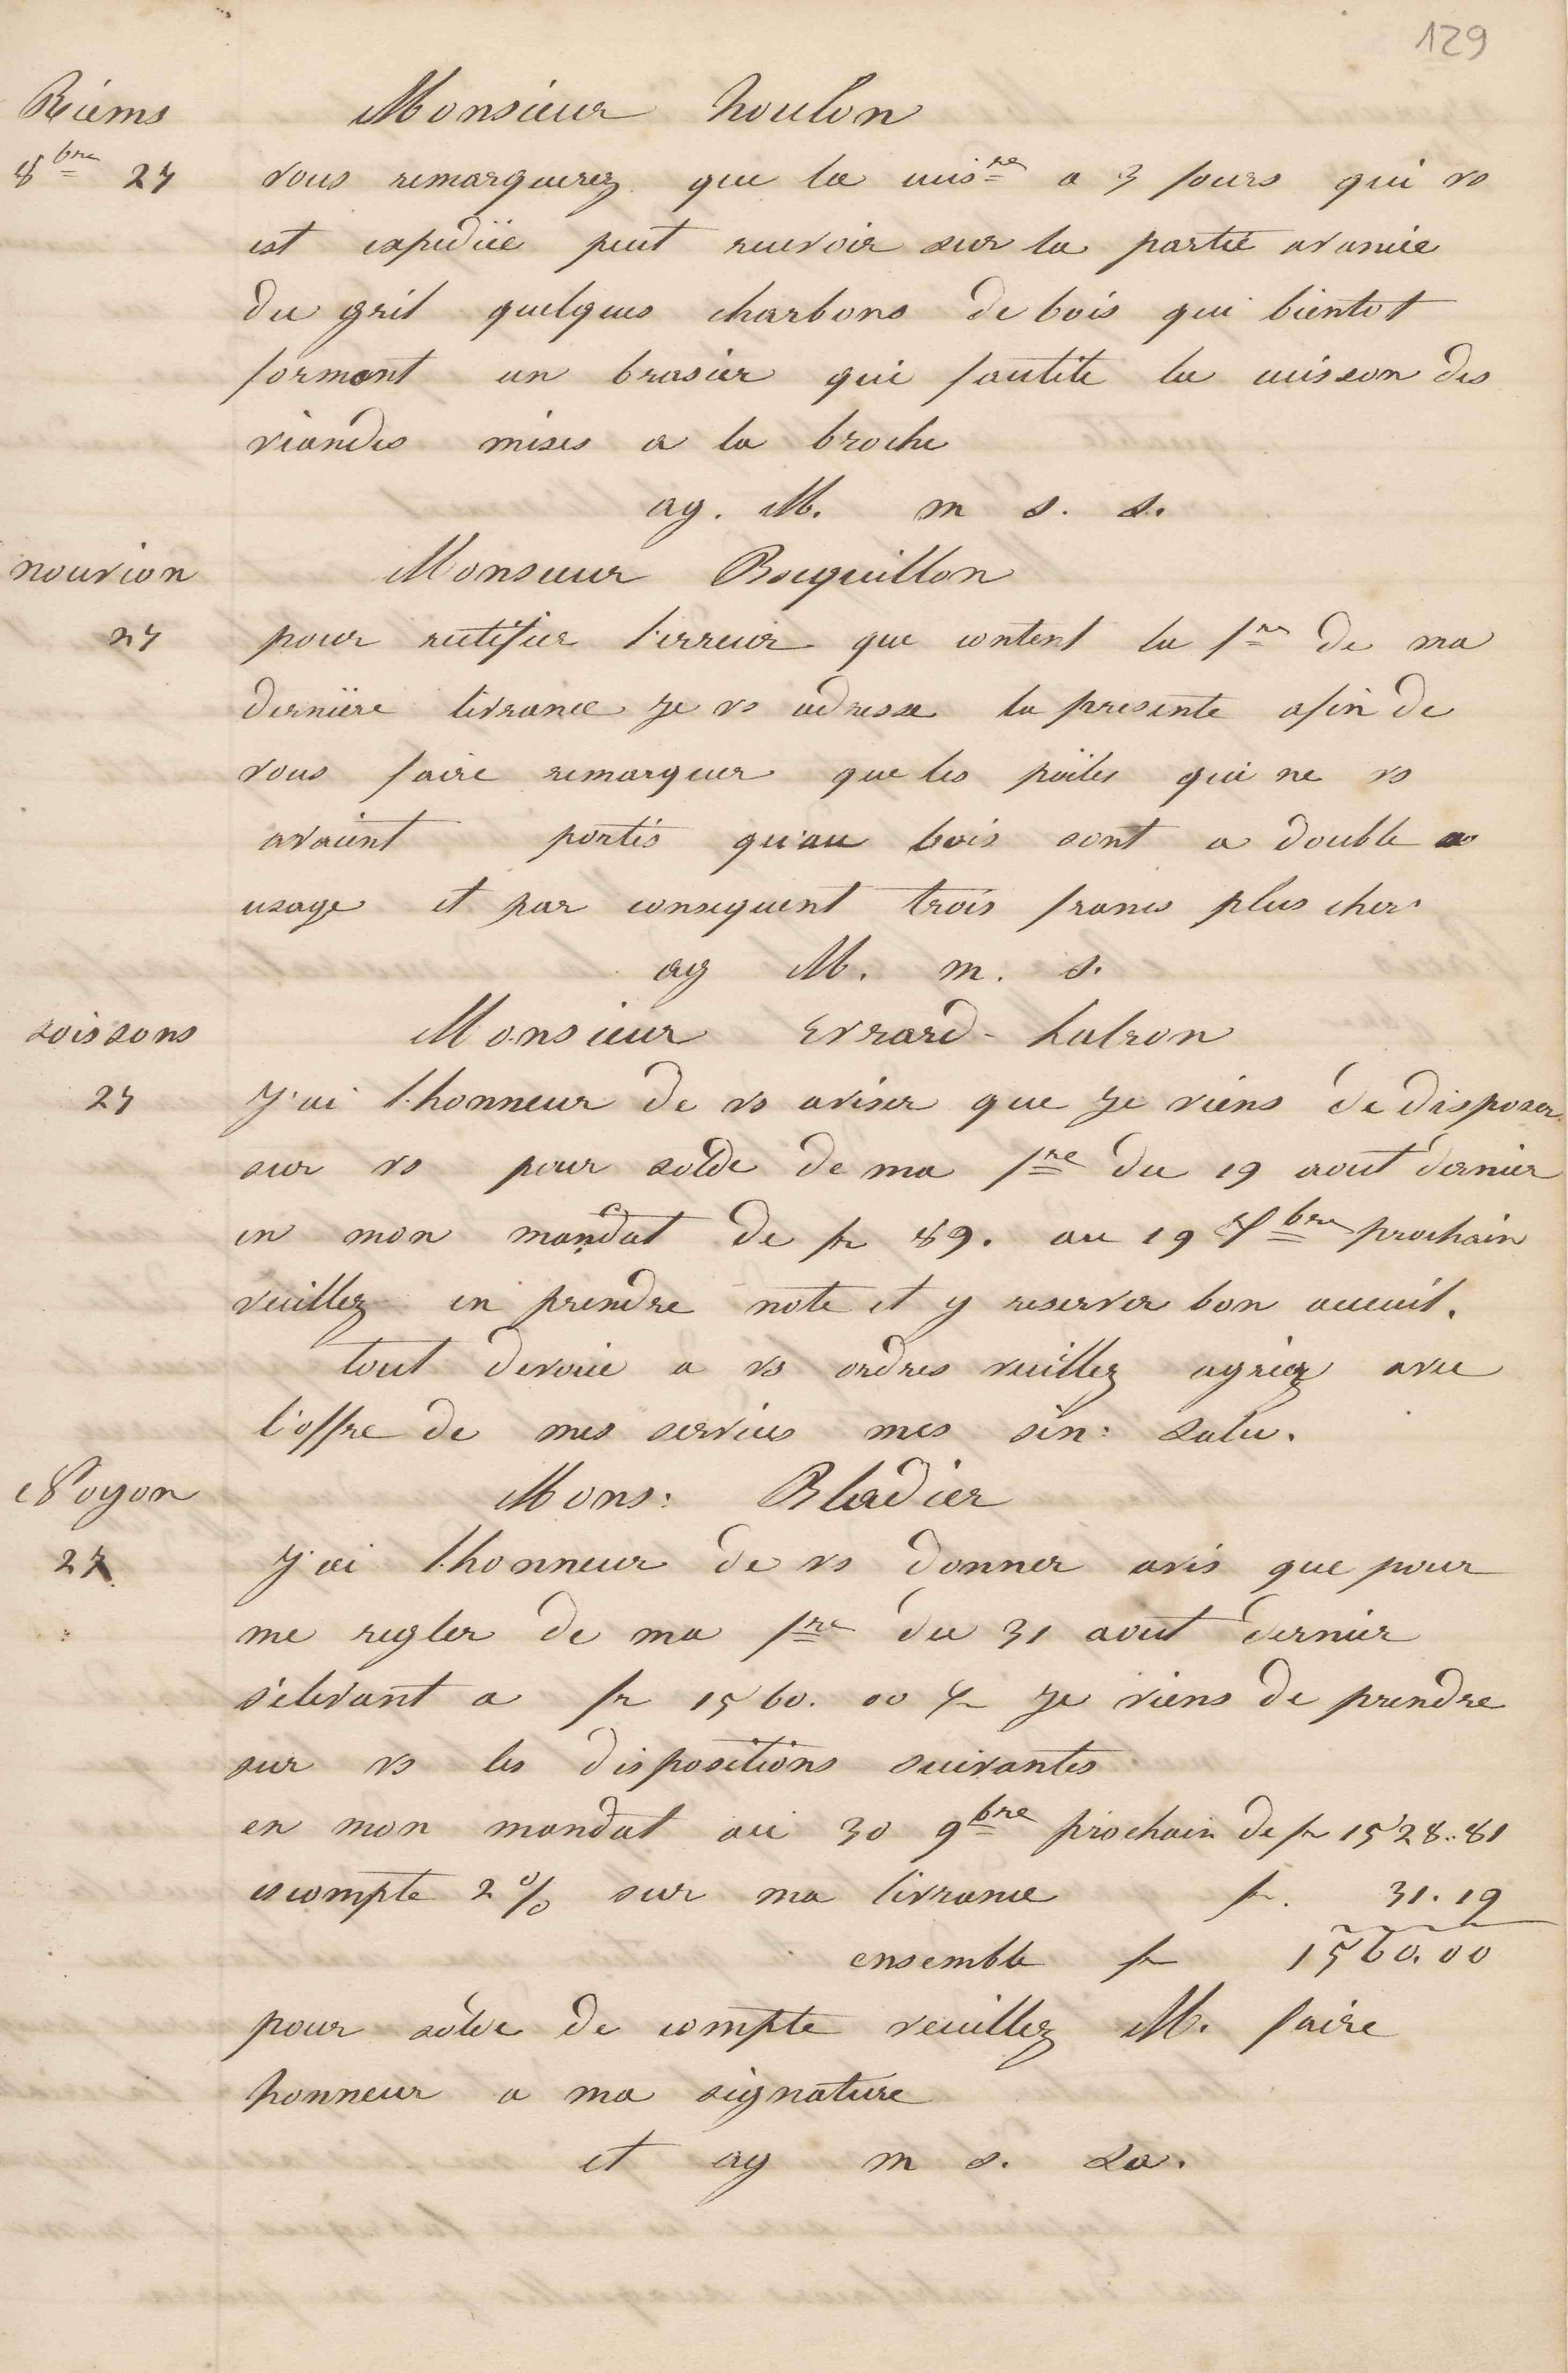 129
Reims
Monsieur houlon
8bre 27 vous remarquerez que la cuisre a 3 fours qui vs
est expediée peut recevoir sur la partie avancée
du gril quelques charbons de bois qui bientot
formont un brasier qui facilite la cuisson des
viandes mises a la broche
ag. M. m s. s.
nouvion Monsieur Bocquillon
27 pour rectifier l'erreur que content la fre de ma
derniere livrance je vs adresse la presente afin de
vous faire remarquer que les poëles qui ne vs
avaient portés qu'au bois sont a double
usage et par consequent trois francs plus cher
ag M. m. s.
soissons Monsieur Evrard-
27 J'ai l'honneur de vs aviser que je viens de disposer
sur vs pour solde de ma fre du 19 aout dernier
en mon mandat de fr 89. au 19 bre prochain
veuillez en prendre note et y reserver bon acceuil.
tout devoué a vs ordres veuillez agréez avec
l'offre de mes services mes sin: salu.
Noyon Mons: Bladier
27 J'ai l'honneur de vs donner avis que pour
me regler de ma fre du 31 aout dernier
s'elevant a fr 1560. 00 je viens de prendre
sur vs les dispositions suivantes
en mon mandat au 30 9bre prochain de fr 1528.81
escompte 2 % sur ma livrance fr. 31.19
ensemble fr 1560.00
pour solde de compte veuillez M. faire
honneur a ma signature
et ag m s. sa.